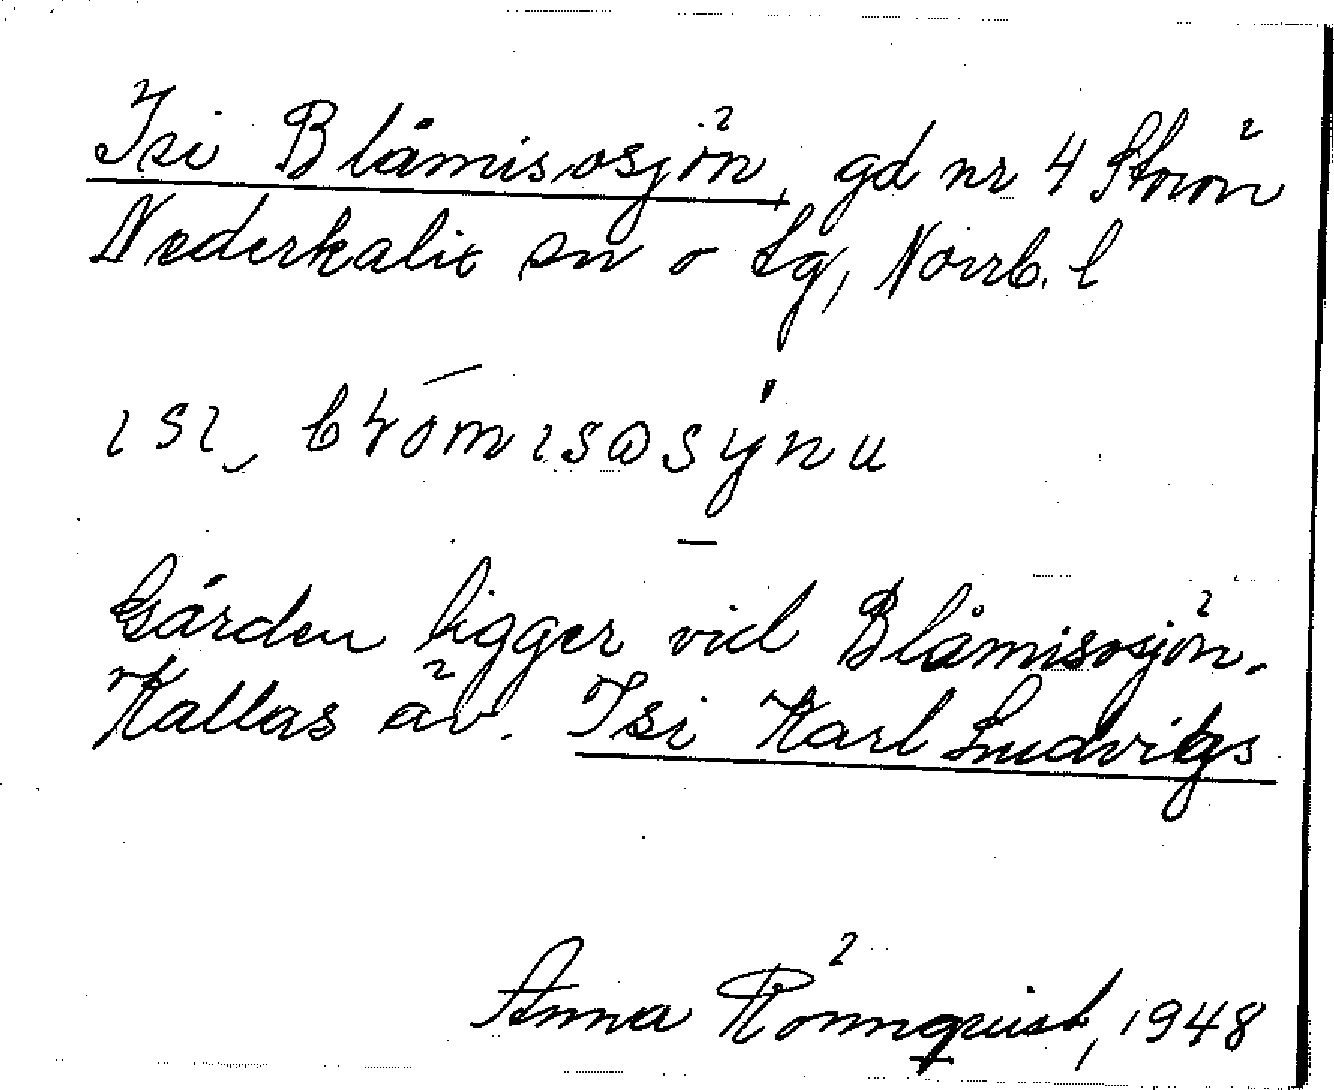 Isi Blåmisosjön, gd nr 4 Storön
Nederkalix sn o tg, Norrb. l
ısı, blómısɷsýnu
Gården ligger vid Blåmisosjön.
Kallas äv. Isi Karl Ludvigs
Anna Rönnquist, 1948